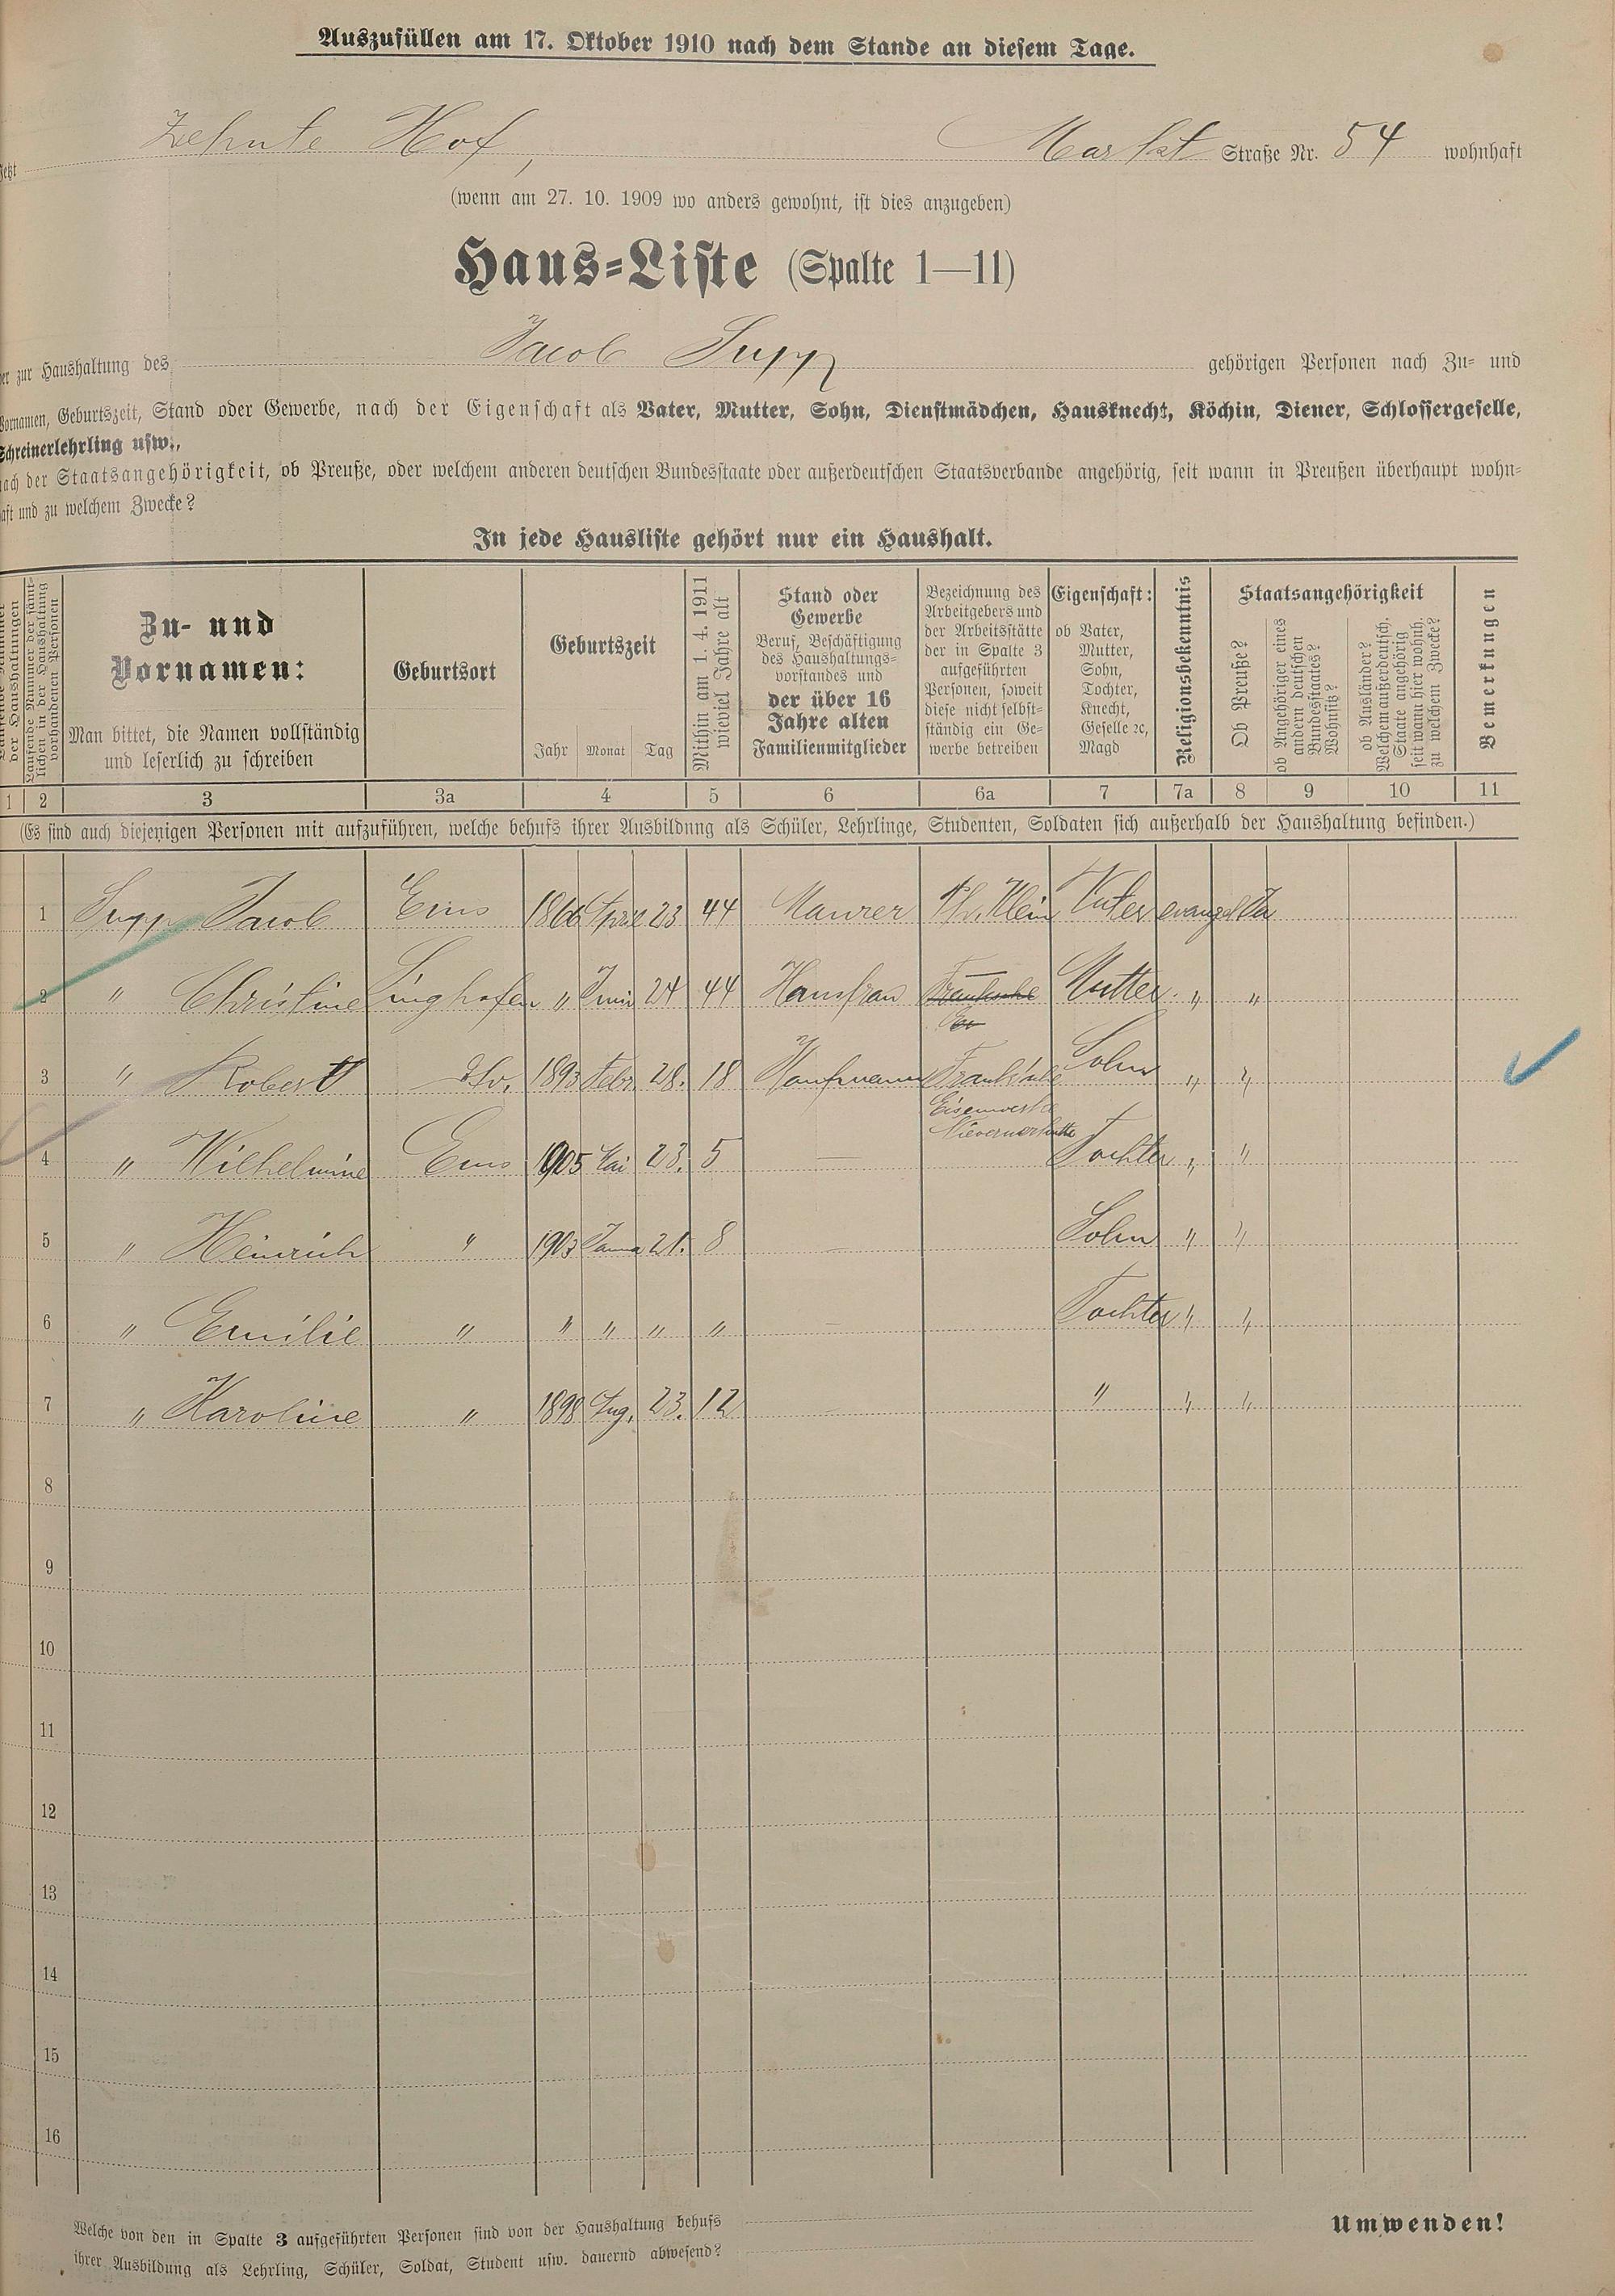 Auszufüllen am 17. Oktober 1910 nach dem Stande an diesem Tage.
Jetzt Zehnte Hof, Markt Straße Nr. 54 wohnhaft
(wenn am 27. 10. 1909 wo anders gewohnt, ist dies anzugeben)
Haus-Liste (Spalte 1—11)
der zur Haushaltung des Jacob Supp gehörigen Personen nach Zu- und
Vornamen, Geburtszeit, Stand oder Gewerbe, nach der Eigenschaft als Vater, Mutter, Sohn, Dienstmädchen, Hausknecht, Köchin, Diener, Schlossergeselle,
Schreinerlehrling usw.,
nach der Staatsangehörigkeit, ob Preuße, oder welchem anderen deutschen Bundesstaate oder außerdeutschen Staatsverbande angehörig, seit wann in Preußen überhaupt wohn-
haft und zu welchem Zwecke?
In jede Hausliste gehört nur ein Haushalt.
der Haushaltungen
Laufende Nummer der sämt-
lichen in der Haushaltung
vorhandenen Personen
Zu- und
Vornamen:
Man bittet, die Namen vollständig
und leserlich zu schreiben
Geburtsort
Geburtszeit
Jahr Monat Tag
Mithin am 1. 4. 1911
wieviel Jahre alt
Stand oder
Gewerbe
Beruf, Beschäftigung
des Haushaltungs-
vorstandes und
der über 16
Jahre alten
Familienmitglieder
Bezeichnung des
Arbeitgebers und
der Arbeitsstätte
der in Spalte 3
aufgeführten
Personen, soweit
diese nicht selbst-
ständig ein Ge-
werbe betreiben
Eigenschaft:
ob Vater,
Mutter,
Sohn,
Tochter,
Knecht,
Geselle ꝛc,
Magd
Religionsbekenntnis
Staatsangehörigkeit
Ob Preuße?
ob Angehöriger eines
andern deutschen
Bundesstaates?
Wohnsitz?
ob Ausländer?
Welchem außerdeutsch.
Staate angehörig
seit wann hier wohnh.
zu welchem Zwecke?
Bemerkungen
1 2 3 3a 4 5 6 6a 7 7a 8 9 10 11
(Es sind auch diejenigen Personen mit aufzuführen, welche behufs ihrer Ausbildung als Schüler, Lehrlinge, Studenten, Soldaten sich außerhalb der Haushaltung befinden.)
1 Supp Jacob Ems 1866 April 23 44 Maurer Ph. Klein Vater evangel Ja
2 " Christine Singhofen " Juni 24 44 Hausfrau Mutter " "
3 " Robert dto. 1893 Febr. 28. 18 Kaufmann Frank'sche Sohn " "
Eisenwerke
Nievernerhütte
4 " Wilhelmine Ems 1905 Mai 23. 5 — Tochter " "
5 " Heinrich " 1903 Janua 21. 8 — Sohn " "
6 " Emilie " " " " " — Tochter " "
7 " Karoline " 1898 Aug. 23. 12 — " " "
8
9
10
11
12
13
14
15
16
Welche von den in Spalte 3 aufgeführten Personen sind von der Haushaltung behufs
ihrer Ausbildung als Lehrling, Schüler, Soldat, Student usw. dauernd abwesend?
Umwenden!